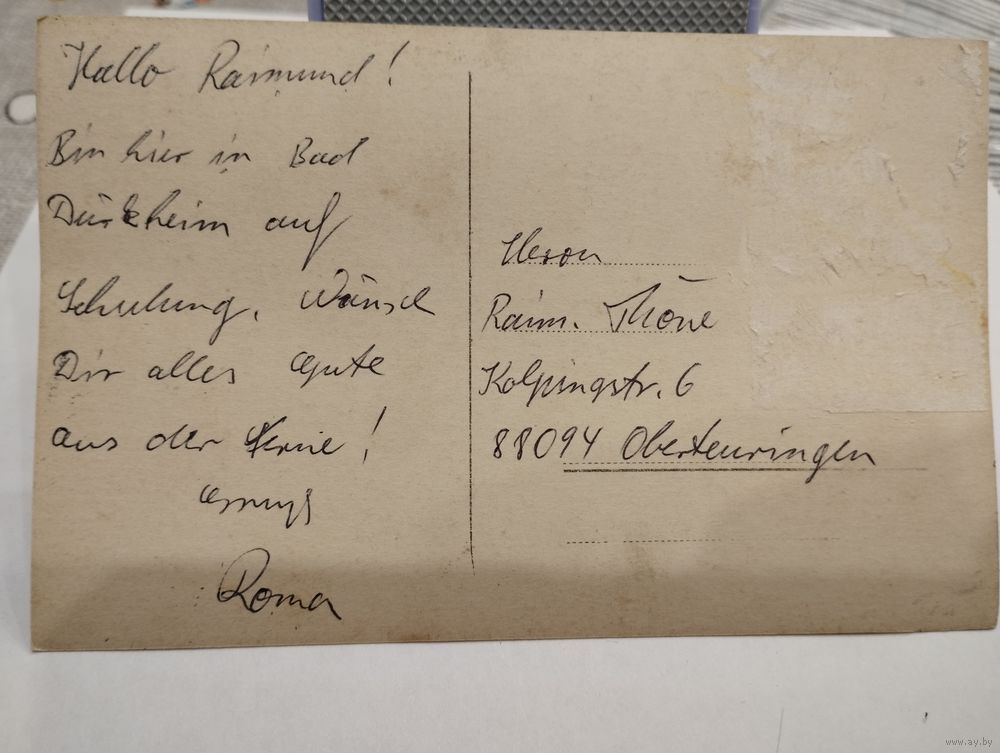 Hallo Raimund!
Bin hier in Bad
Dürkheim auf
Schulung. Wünsch
Dir alles Gute
aus der Ferne!
Gruß
Roma
Herrn
Raim. Thöne
Kolpingstr. 6
88094 Oberteuringen
www.ay.by